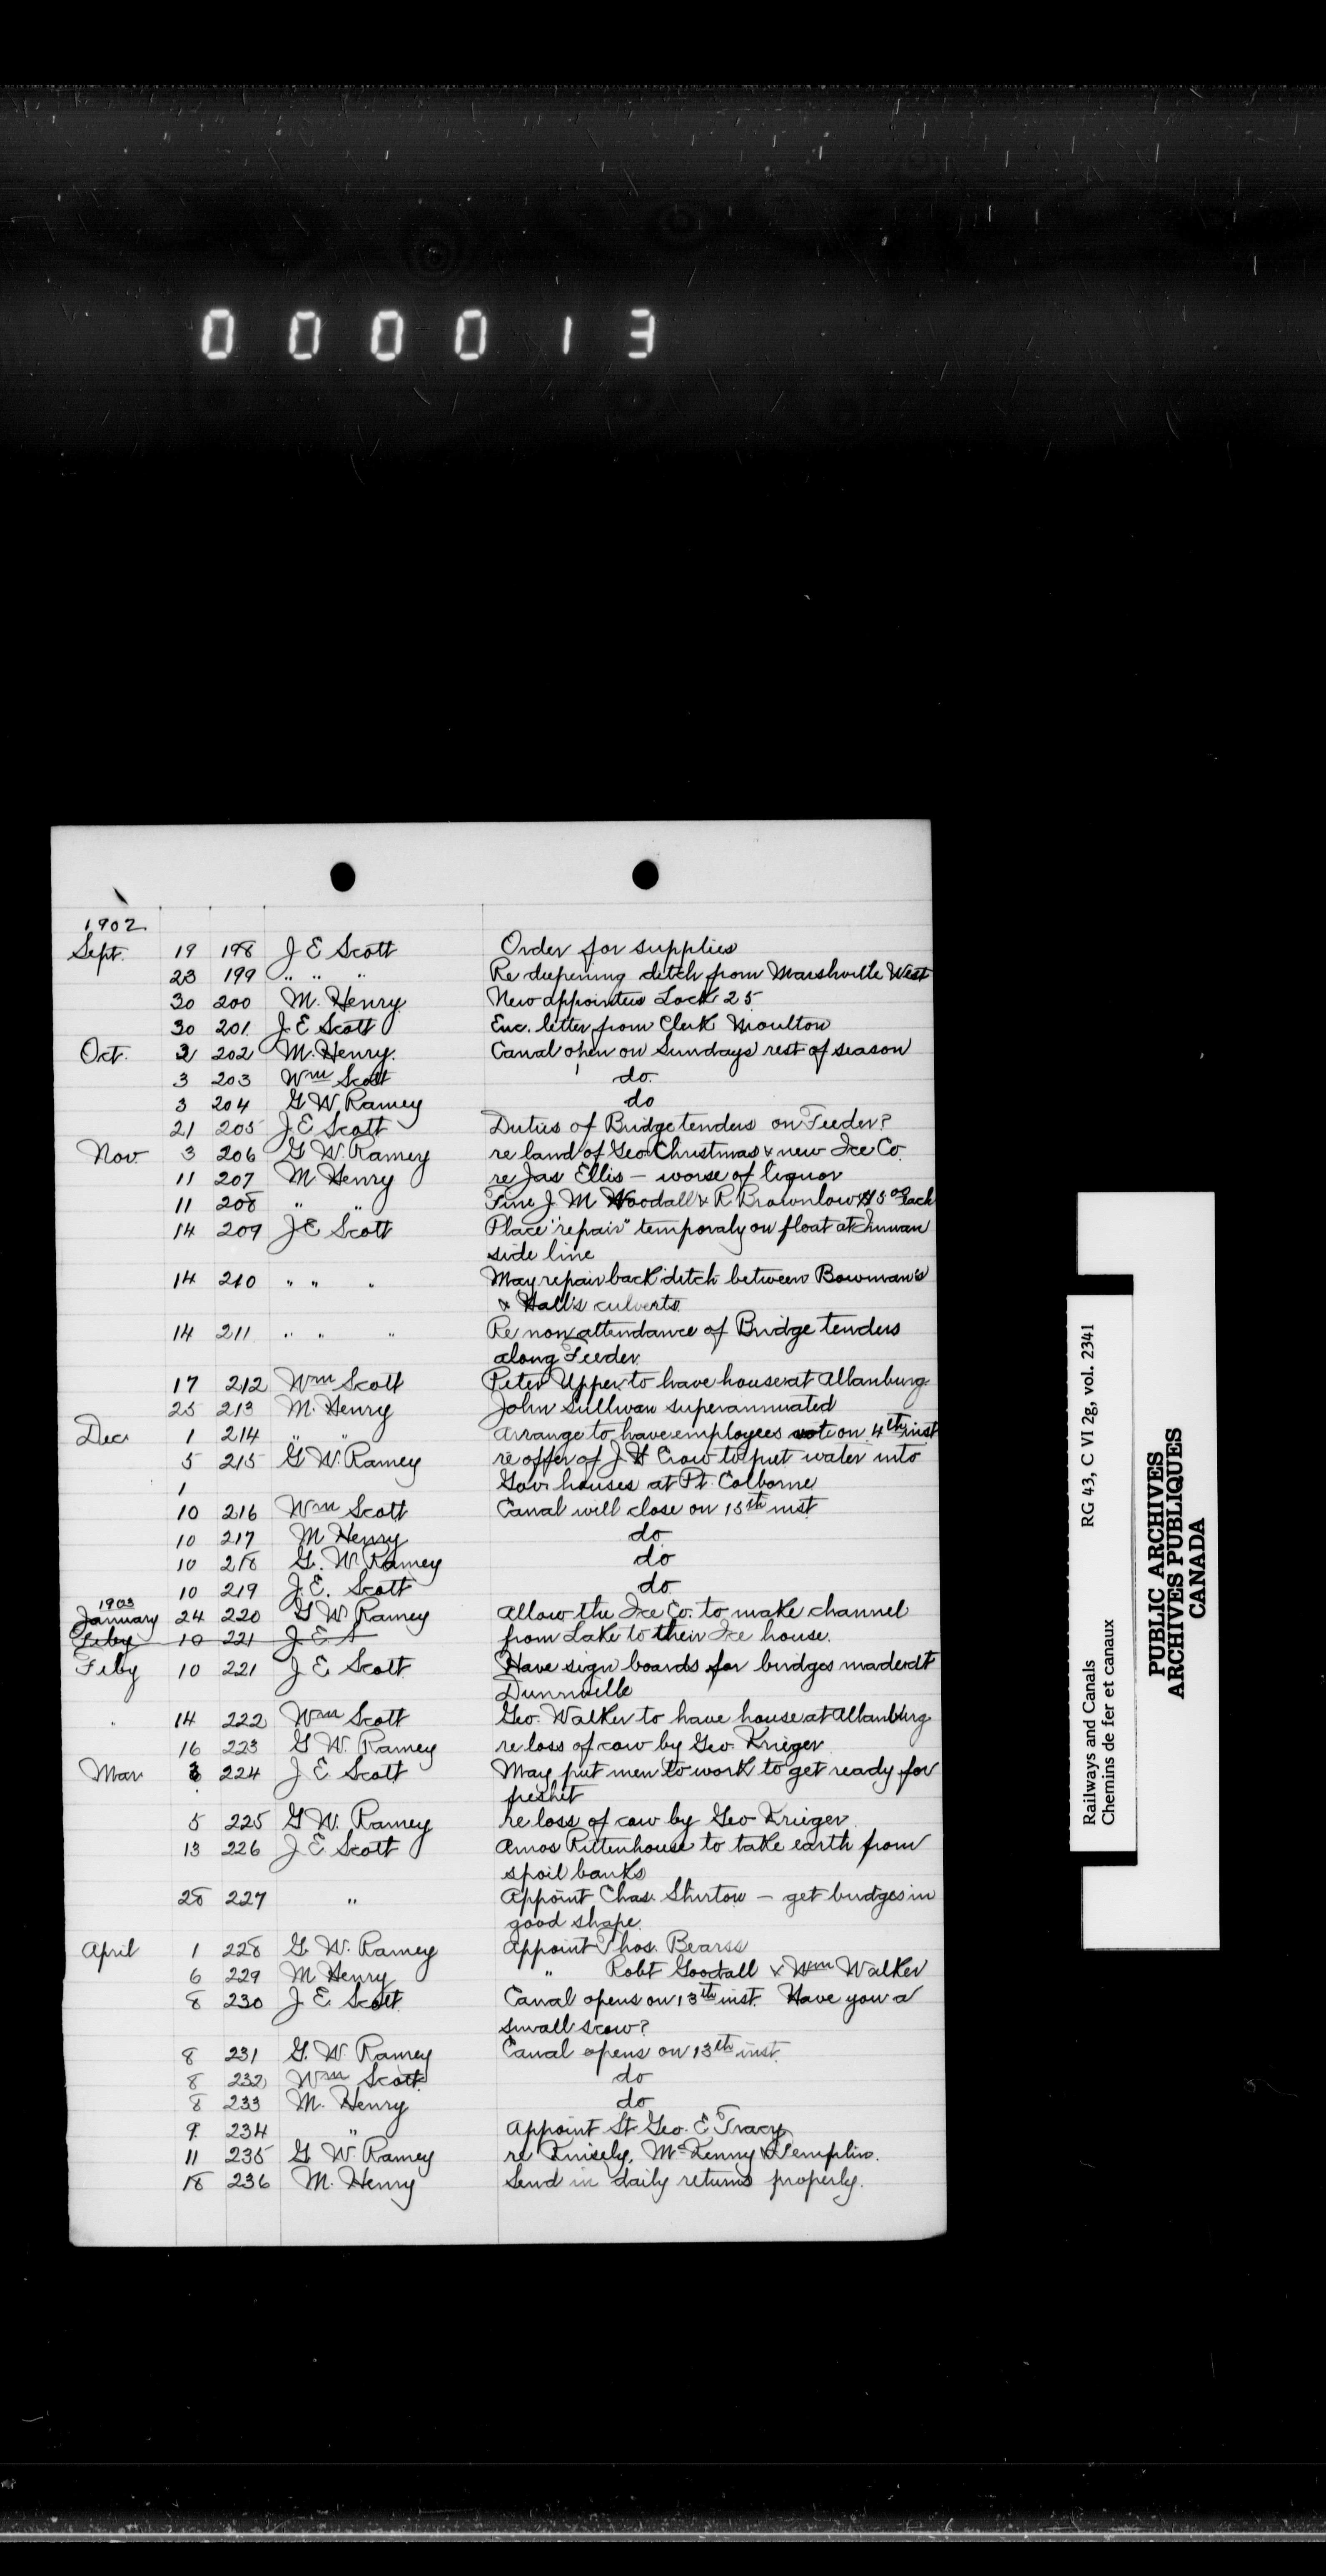 000013
1902
Sept. 19 198 J E Scott Order for supplies
23 199 " " " Re deepening ditch from Marshville West
30 200 M. Henry New appointees Lock 25
30 201 J. E Scott Enc. letter from Clerk Moulton
Oct. 3 202 M. Henry. Canal open on Sundays rest of season
3 203 Wm Scott do.
3 204 G W Ramey do
21 205 J. E Scott Duties of Bridge tenders on Feeder?
Nov. 3 206 G W. Ramey re land of Geo Christmas & new Ice Co.
11 207 M Henry re Jas Ellis – worse of liquor
11 208 " " Fine J M Woodall & R Brownlow $5 00 each
14 209 J E Scott Place "repair" temporaly on float at
side line
14 210 " " " May repair back ditch between Bowman's
& Hall's culverts
14 211 " " " Re non attendance of Bridge tenders
along Feeder
17 212 Wm Scott Peter Upper to have house at Allanburg.
25 213 M. Henry John Sullivan superannuated
Dec. 1 214 " " Arrange to have employees vote on 4th inst
5 215 G W. Ramey re offer of J. H Crow to put water into
1 Gov. houses at Pt. Colborne
10 216 Wm Scott Canal will close on 15th inst
10 217 M Henry do
10 218 G. W. Ramey do
10 219 J. E. Scott do
1903
January 24 220 G W Ramey Allow the Ice Co. to make channel
Feby 10 221 J. E S from Lake to their Ice house.
Feby 10 221 J E. Scott Have sign boards for bridges made at
Dunnville
" 14 222 Wm Scott Geo. Walker to have house at Allanburg
16 223 G W. Ramey re loss of cow by Geo. Krieger
Mar 3 224 J E Scott May put men to work to get ready for
freshet
5 225 G W. Ramey re loss of cow by Geo Krieger
13 226 J E Scott Amos Rittenhouse to take earth from
spoil banks
28 227 " Appoint Chas. Shirton – get bridges in
good shape.
April 1 228 G. W. Ramey Appoint Thos. Bearss
6 229 M Henry " Robt Goodall & Wm Walker
8 230 J. E Scott Canal opens on 13th inst. Have you a
small scow?
8 231 G. W Ramey Canal opens on 13th inst.
8 232 Wm Scott do
8 233 M. Henry do
9 234 " Appoint St. Geo. E Tracy
11 235 G W. Ramey re Knisely, McKenny & Templin.
18 236 M. Henry Send in daily returns properly.
Railways and Canals RG 43, C VI 2g, vol. 2341
Chemins de fer et canaux
PUBLIC ARCHIVES
ARCHIVES PUBLIQUES
CANADA